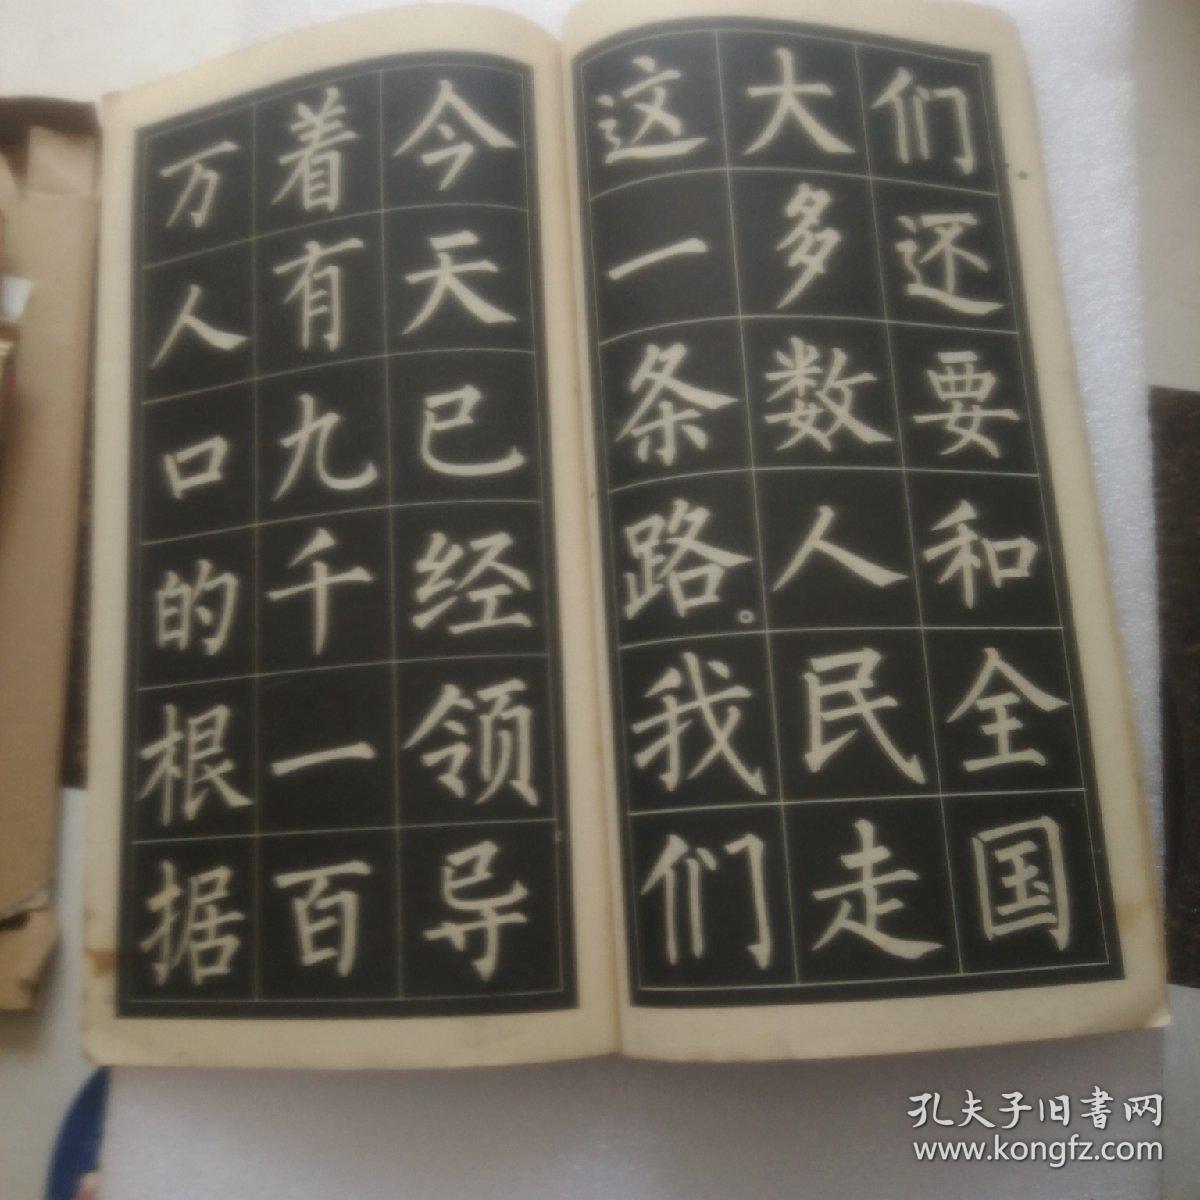 们还要和全国
大多数人民走
这一条路。我们
今天已经领导
着有九千一百
万人口的根据
孔夫子旧书网
www.kongfz.com